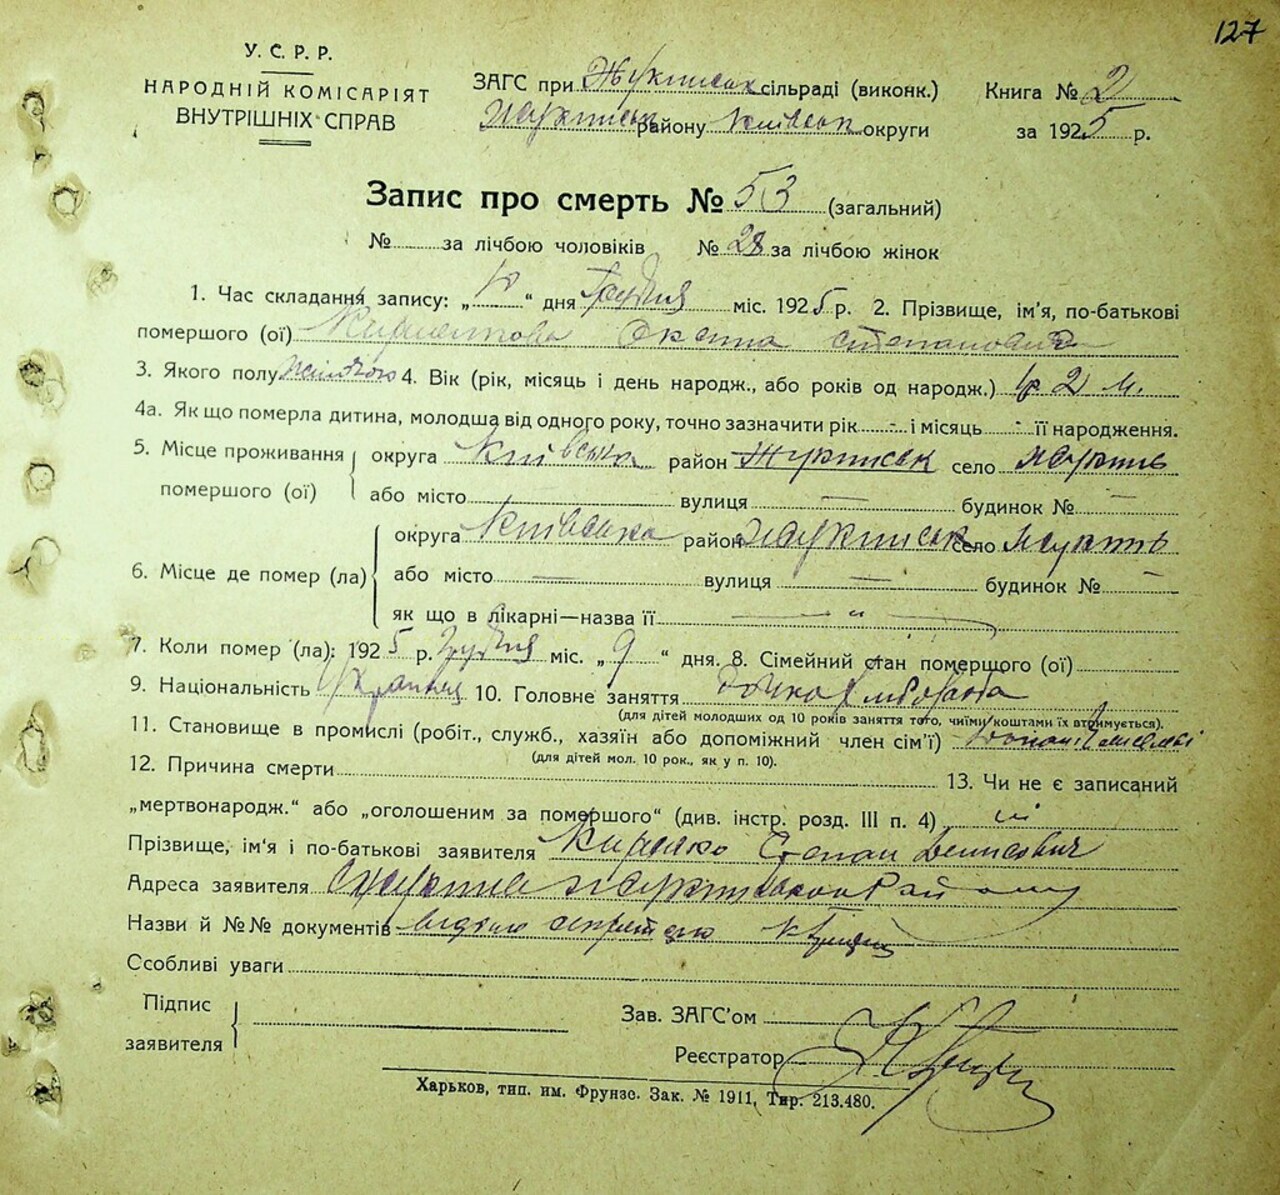 127
У. С. Р. Р.
НАРОДНІЙ КОМІСАРІЯТ
ВНУТРІШНІХ СПРАВ
ЗАГС при сільраді (виконк.)
району Київськ округи
Книга № 2
за 1925 р.
Запис про смерть № 53 (загальний)
№ за лічбою чоловіків № 28 за лічбою жінок
1. Час складання запису: „10“ дня Грудня міс. 1925 р. 2. Прізвище, ім'я, по-батькові
помершого (ої) Оксана Степановна
3. Якого полу жіночого 4. Вік (рік, місяць і день народж., або років од народж.) 1 р 2 м.
4а. Як що померла дитина, молодша від одного року, точно зазначити рік - і місяць - її народження.
5. Місце проживання округа Київська район село
помершого (ої) або місто вулиця — будинок № —
округа Київська район село
6. Місце де помер (ла) або місто — вулиця — будинок № —
як що в лікарні—назва її — „ —
7. Коли помер (ла): 1925 р. Грудня міс. „9“ дня. 8. Сімейний стан помершого (ої)
9. Національність 10. Головне заняття дочка хлібороба
(для дітей молодших од 10 років заняття того, чиїми коштами їх втримується).
11. Становище в промислі (робіт., служб., хазяїн або допоміжний член сім'ї)
(для дітей мол. 10 рок., як у п. 10).
12. Причина смерти 13. Чи не є записаний
„мертвонародж.“ або „оголошеним за помершого“ (див. інстр. розд. III п. 4) ні
Прізвище, ім'я і по-батькові заявителя Степан Денисович
Адреса заявителя району
Назви й №№ документів
Особливі уваги
Підпис
заявителя
Зав. ЗАГС'ом
Реєстратор
Харьков, тип. им. Фрунзе. Зак. № 1911, Тир. 213.480.